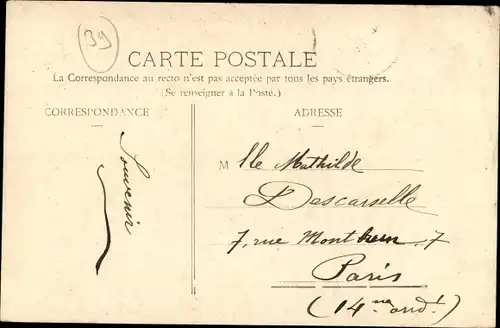 39
CARTE POSTALE
La Correspondance au recto n'est pas acceptée par tous les pays étrangers.
(Se renseigner à la Poste.)
CORRESPONDANCE
ADRESSE
Souvenir
Mlle Mathilde
Descarselle
7, rue Montbrun, 7
Paris
(14me arrd!)